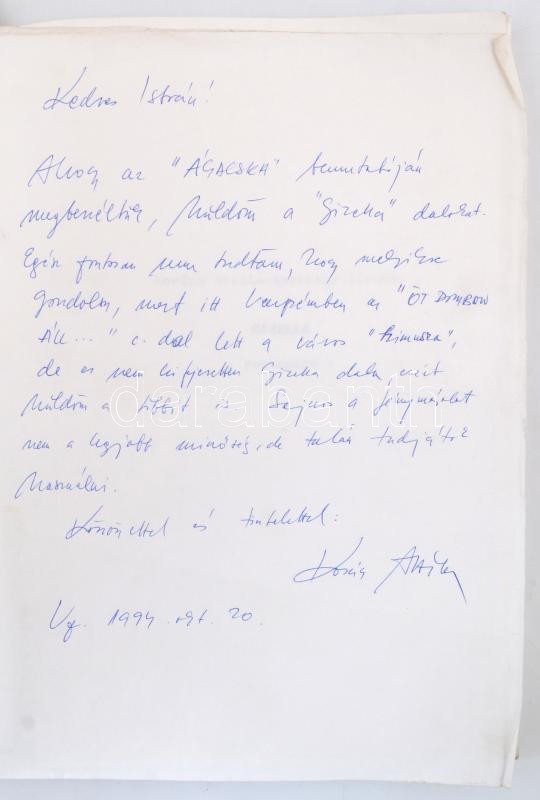 Kedves István!
Ahogy az "ÁGACSKA" bemutatóján
megbeszéltük, küldöm a "Gizella" dalokat.
Egész pontosan nem tudtam, hogy melyikre
gondolsz, mert itt Veszprémben az "ÖT DOMBON
ÁLL..." c. dal lett a város "himnusza",
de ez nem kifejezetten Gizella dala, ezért
küldöm a többit is. Sajnos a fénymásolat
nem a legjobb minőség, de talán tudjátok
használni.
Köszönettel és tisztelettel:
Attila
1994. 20.
darabanth